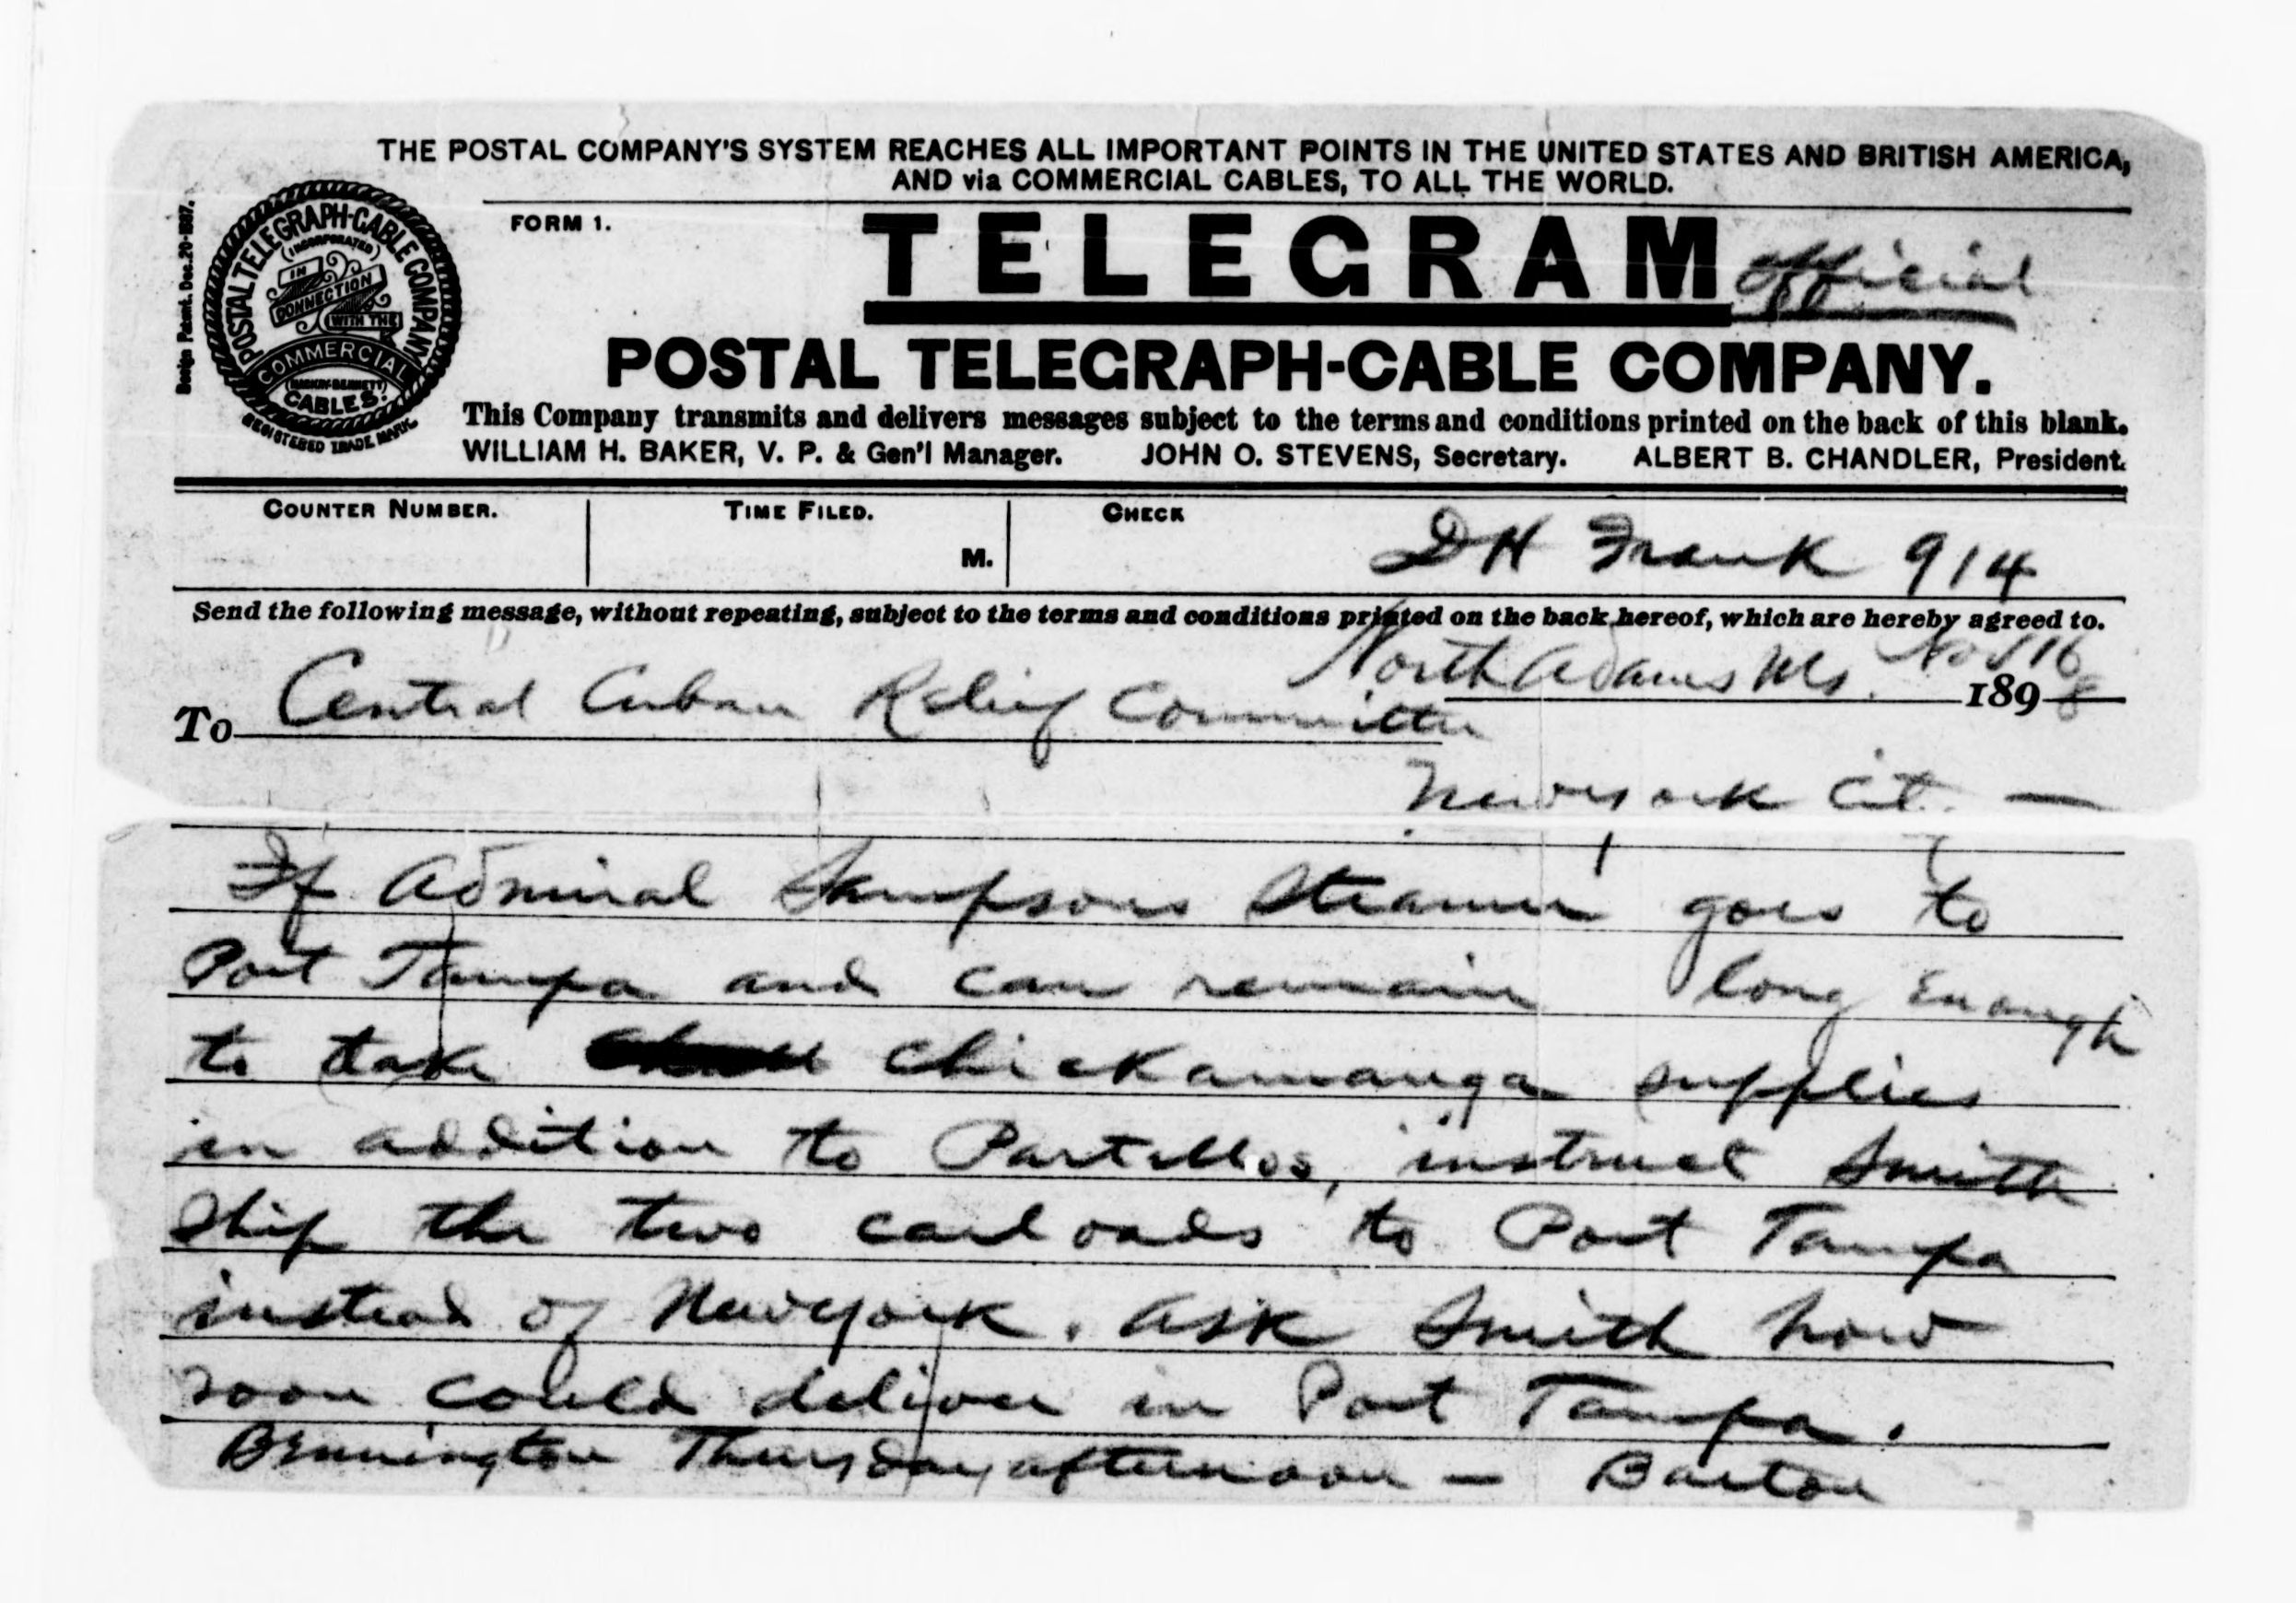 THE POSTAL COMPANY'S SYSTEM REACHES ALL IMPORTANT POINTS IN THE UNITED STATES AND BRITISH AMERICA,
AND via COMMERCIAL CABLES, TO ALL THE WORLD.
Design Patent. Dec. 20-1887.
POSTAL TELEGRAPH-CABLE COMPANY
(INCORPORATED)
IN
CONNECTION
WITH THE
COMMERCIAL
(MACKAY-BENNETT)
CABLES.
REGISTERED TRADE MARK.
FORM 1.
TELEGRAM official
POSTAL TELEGRAPH-CABLE COMPANY.
This Company transmits and delivers messages subject to the terms and conditions printed on the back of this blank.
WILLIAM H. BAKER, V. P. & Gen'l Manager. JOHN O. STEVENS, Secretary. ALBERT B. CHANDLER, President.
COUNTER NUMBER. TIME FILED. CHECK
M.
DH Frank 914
Send the following message, without repeating, subject to the terms and conditions printed on the back hereof, which are hereby agreed to.
North Adams Ms. Nov 16 1898
To Central Cuban Relief Committee
Newyork Cit. —
If Admiral Sampsons Steamer goes to
Port Tampa and can remain long Enough
to take Chickamauga supplies
in addition to Partellos, instruct Smith
Ship the two carloads to Port Tampa
instead of Newyork. Ask Smith how
soon could deliver in Port Tampa.
Bennington Thursday afternoon — Barton